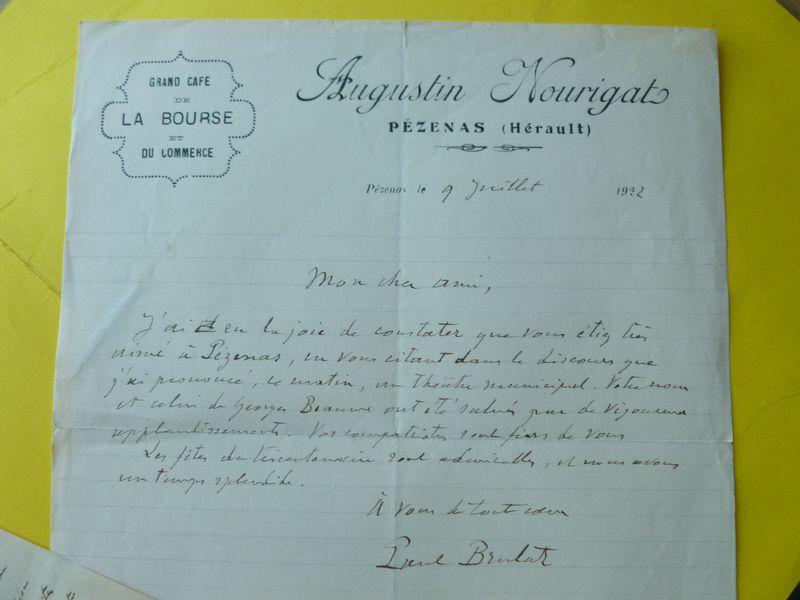 GRAND CAFE
DE
LA BOURSE
ET
DU COMMERCE
Augustin Nourigat
PÉZENAS (Hérault)
Pézenas le 9 Juillet 1922
Mon cher ami,
J'ai eu la joie de constater que vous étiez très
aimé à Pézenas, en vous citant dans le discours que
j'ai prononcé, ce matin, au théâtre municipal. Votre nom
et celui de Georges Beaume ont été salués par de vigoureux
applaudissements. Vos compatriotes sont fiers de vous
Les fêtes du tricentenaire sont admirables, et nous avons
un temps splendide.
À vous de tout cœur
Paul Brulat